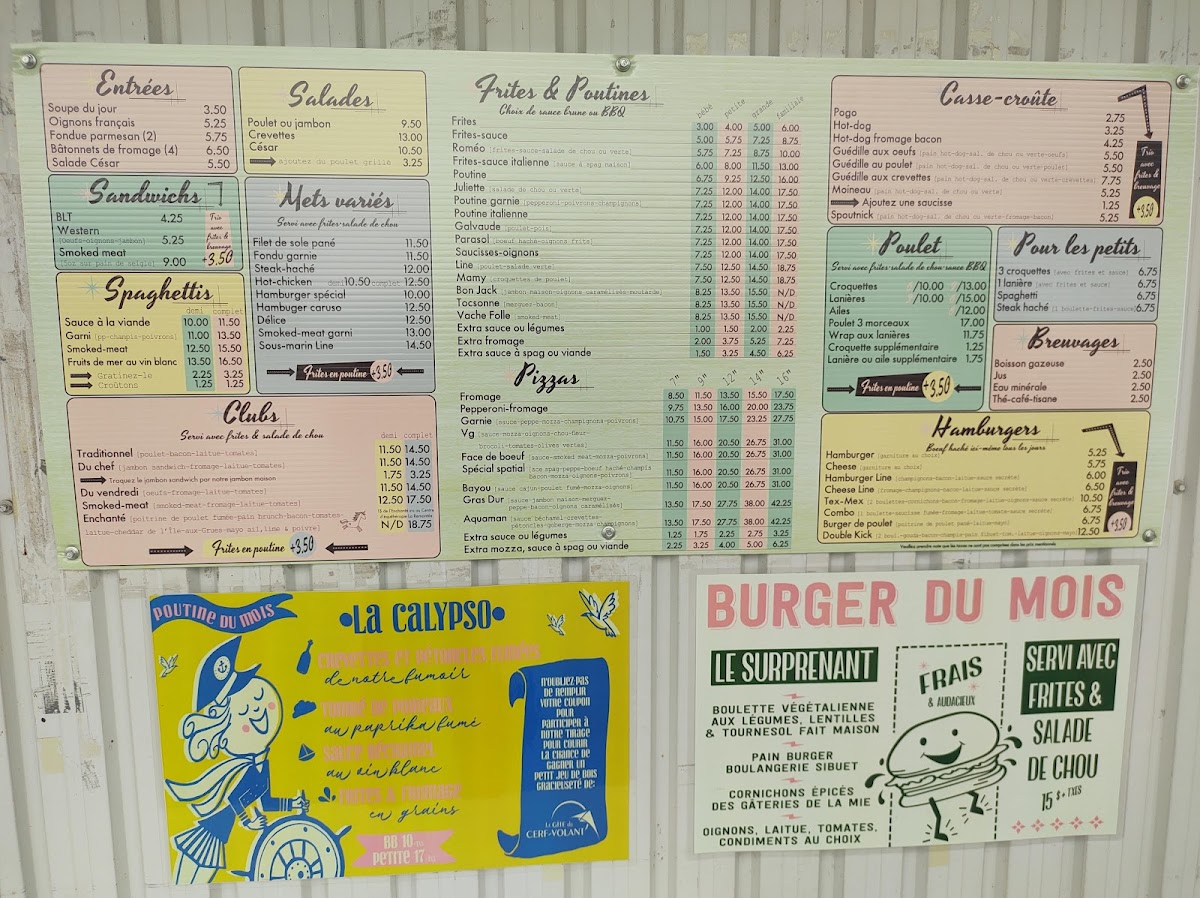 Entrées
Soupe du jour 3.50
Oignons français 5.25
Fondue parmesan (2) 5.75
Bâtonnets de fromage (4) 6.50
Salade César 5.50
Salades
Poulet ou jambon 9.50
Crevettes 13.00
César 10.50
ajoutez du poulet grillé 3.25
Sandwichs
BLT 4.25
Western 5.25
[Oeufs-oignons-jambon]
Smoked meat 9.00
[Sos sur pain de seigle]
Trio avec frites & breuvage +3.50
Mets variés
Servi avec frites-salade de chou
Filet de sole pané 11.50
Fondu garnie 11.50
Steak-haché 12.00
Hot-chicken demi 10.50 complet 12.50
Hamburger spécial 10.00
Hamburger caruso 12.50
Délice 12.50
Smoked-meat garni 13.00
Sous-marin Line 14.50
Frites en poutine +3.50
Spaghettis
demi complet
Sauce à la viande 10.00 11.50
Garni [pp-champis-poivrons] 11.00 13.50
Smoked-meat 12.50 15.50
Fruits de mer au vin blanc 13.50 16.50
Gratinez-le 2.25 3.25
Croûtons 1.25 1.25
Clubs
Servi avec frites & salade de chou
demi complet
Traditionnel [poulet-bacon-laitue-tomates] 11.50 14.50
Du chef [jambon sandwich-fromage-laitue-tomates] 11.50 14.50
Troquez le jambon sandwich par notre jambon maison 1.75 3.25
Du vendredi [oeufs-fromage-laitue-tomates] 11.50 14.50
Smoked-meat [smoked-meat-fromage-laitue-tomates] 12.50 17.50
Enchanté [poitrine de poulet fumée-pain brunch-bacon-tomates- N/D 18.75
laitue-cheddar de l'Île-aux-Grues-mayo ail, lime & poivre]
Frites en poutine +3.50
Frites & Poutines
Choix de sauce brune ou BBQ
bébé petite grande familiale
Frites 3.00 4.00 5.00 6.00
Frites-sauce 5.00 5.75 7.25 8.75
Roméo [frites-sauce-salade de chou ou verte] 5.75 7.25 8.75 10.00
Frites-sauce italienne [sauce à spag maison] 6.00 8.00 11.50 13.00
Poutine 6.75 9.25 12.50 16.00
Juliette [salade de chou ou verte] 7.25 12.00 14.00 17.50
Poutine garnie [pepperoni-poivrons-champignons] 7.25 12.00 14.00 17.50
Poutine italienne 7.25 12.00 14.00 17.50
Galvaude [poulet-pois] 7.25 12.00 14.00 17.50
Parasol [boeuf haché-oignons frits] 7.25 12.00 14.00 17.50
Saucisses-oignons 7.25 12.00 14.00 17.50
Line [poulet-salade verte] 7.50 12.50 14.50 18.75
Mamy [croquettes de poulet] 7.50 12.50 14.50 18.75
Bon Jack [jambon maison-oignons caramélisés-moutarde] 8.25 13.50 15.50 N/D
Tocsonne [merguez-bacon] 8.25 13.50 15.50 N/D
Vache Folle [smoked-meat] 8.25 13.50 15.50 N/D
Extra sauce ou légumes 1.00 1.50 2.00 2.25
Extra fromage 2.00 3.75 5.25 7.25
Extra sauce à spag ou viande 1.50 3.25 4.50 6.25
Pizzas
7" 9" 12" 14" 16"
Fromage 8.50 11.50 13.50 15.50 17.50
Pepperoni-fromage 9.75 13.50 16.00 20.00 23.75
Garnie [sauce-peppe-mozza-champignons-poivrons] 10.75 15.00 17.50 23.25 27.75
Vg [sauce-mozza-oignons-chou-fleur-
brocoli-tomates-olives vertes] 11.50 16.00 20.50 26.75 31.00
Face de boeuf [sauce-smoked meat-mozza-poivrons] 11.50 16.00 20.50 26.75 31.00
Spécial spatial [sce spag-peppe-boeuf haché-champis
bacon-mozza-oignons-poivrons] 11.50 16.00 20.50 26.75 31.00
Bayou [sauce cajun-poulet fumé-mozza-oignons] 11.50 16.00 20.50 26.75 31.00
Gras Dur [sauce-jambon maison-merguez-
pepperoni-bacon-mozza-oignons] 13.50 17.50 27.75 38.00 42.25
Aquaman [sauce béchamel-crevettes-
pétoncles-goberge-mozza-champignons] 13.50 17.50 27.75 38.00 42.25
Extra sauce ou légumes 1.25 1.75 2.25 2.75 3.25
Extra mozza, sauce à spag ou viande 2.25 3.25 4.00 5.00 6.25
Casse-croûte
Pogo 2.75
Hot-dog 3.25
Hot-dog fromage bacon 4.25
Guédille aux oeufs [pain hot-dog-sal. de chou ou verte-oeufs] 5.50
Guédille au poulet [pain hot-dog-sal. de chou ou verte-poulet] 5.50
Guédille aux crevettes [pain hot-dog-sal. de chou ou verte-crevettes] 7.75
Moineau [pain hot-dog-sal. de chou ou verte] 5.25
Ajoutez une saucisse 1.25
Spoutnick [pain hot-dog-sal. de chou ou verte-fromage-bacon] 5.25
Trio avec frites & breuvage +3.50
Poulet
Servi avec frites-salade de chou-sauce BBQ
Croquettes /10.00 /13.00
Lanières /10.00 /15.00
Ailes /12.00
Poulet 3 morceaux 17.00
Wrap aux lanières 11.75
Croquette supplémentaire 1.25
Lanière ou aile supplémentaire 1.75
Frites en poutine +3.50
Pour les petits
3 croquettes [avec frites et sauce] 6.75
1 lanière [avec frites et sauce] 6.75
Spaghetti 6.75
Steak haché [1 boulette-frites-sauce] 6.75
Breuvages
Boisson gazeuse 2.50
Jus 2.50
Eau minérale 2.50
Thé-café-tisane 2.50
Hamburgers
Boeuf haché ici-même tous les jours
Hamburger [garniture au choix] 5.25
Cheese [garniture au choix] 5.75
Hamburger Line [champignons-bacon-laitue-sauce secrète] 6.00
Cheese Line [fromage-champignons-bacon-laitue-sauce secrète] 6.50
Tex-Mex 10.50
Combo [1 boulette-saucisse fumée-fromage-laitue-oignons-sauce secrète] 6.75
Burger de poulet [poitrine de poulet pané-laitue-mayo] 6.75
Double Kick 12.50
Trio avec frites & breuvage +3.50
Veuillez prendre note que les taxes ne sont pas comprises dans les prix mentionnés
POUTINE DU MOIS
•LA CALYPSO•
CREVETTES ET PÉTONCLES FUMÉES
de notre fumoir
TOMBÉ DE POIREAUX
au paprika fumé
SAUCE BÉCHAMEL
au vin blanc
FRITES & FROMAGE
en grains
BB 10
PETITE 17
N'OUBLIEZ PAS
DE REMPLIR
VOTRE COUPON
POUR
PARTICIPER À
NOTRE TIRAGE
POUR COURIR
LA CHANCE DE
GAGNER UN
PETIT JEU DE BOIS
GRACIEUSETÉ DE:
Le GÎTE du
CERF-VOLANT
BURGER DU MOIS
LE SURPRENANT
BOULETTE VÉGÉTALIENNE
AUX LÉGUMES, LENTILLES
& TOURNESOL FAIT MAISON
PAIN BURGER
BOULANGERIE SIBUET
CORNICHONS ÉPICÉS
DES GÂTERIES DE LA MIE
OIGNONS, LAITUE, TOMATES,
CONDIMENTS AU CHOIX
FRAIS
& AUDACIEUX
SERVI AVEC
FRITES &
SALADE
DE CHOU
15 $+TXS